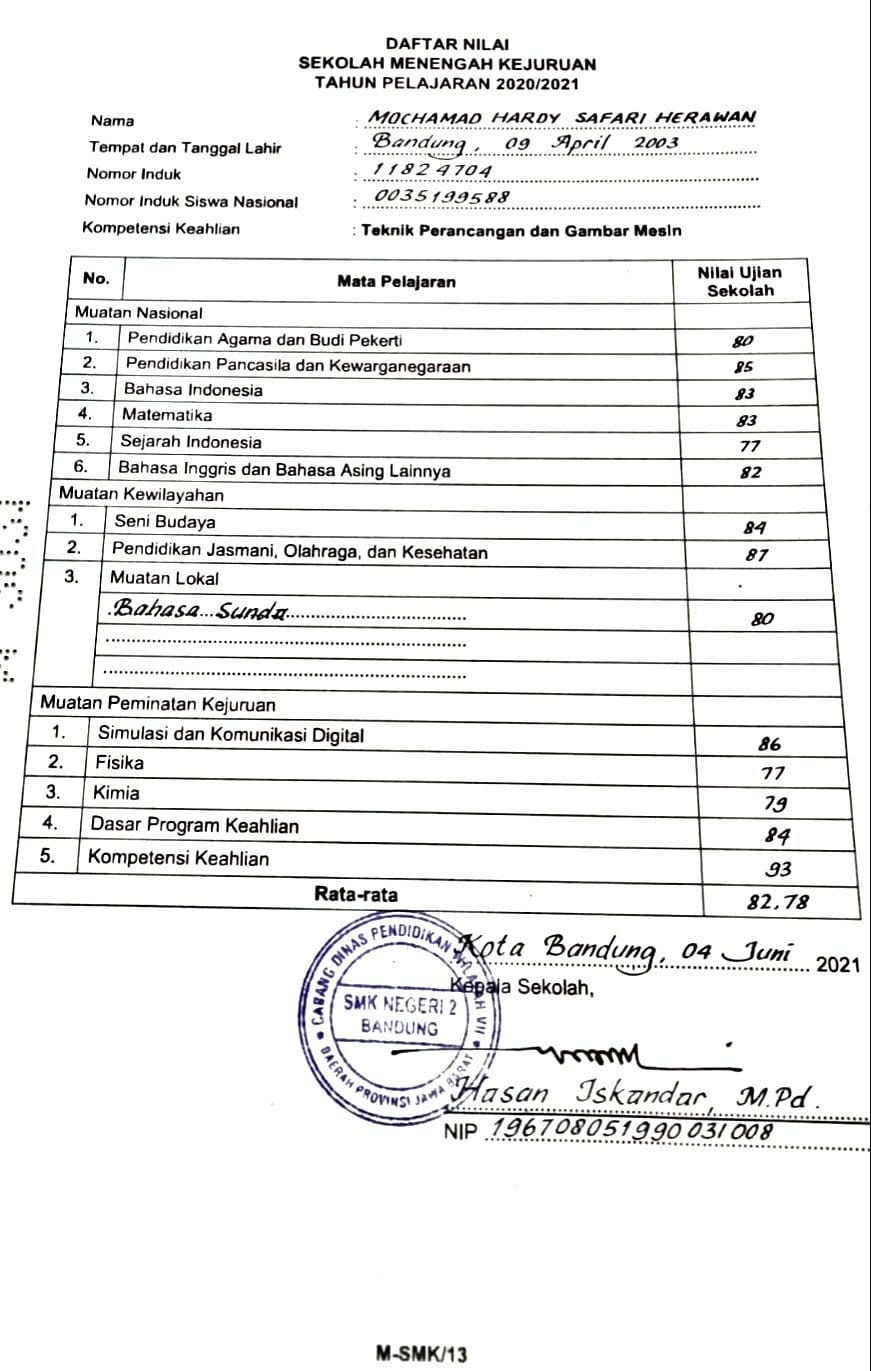 DAFTAR NILAI
SEKOLAH MENENGAH KEJURUAN
TAHUN PELAJARAN 2020/2021
Nama : MOCHAMAD HARDY SAFARI HERAWAN
Tempat dan Tanggal Lahir : Bandung, 09 April 2003
Nomor Induk : 11824704
Nomor Induk Siswa Nasional : 0035199588
Kompetensi Keahlian : Teknik Perancangan dan Gambar Mesin
No. Mata Pelajaran Nilai Ujian Sekolah
Muatan Nasional
1. Pendidikan Agama dan Budi Pekerti 80
2. Pendidikan Pancasila dan Kewarganegaraan 85
3. Bahasa Indonesia 83
4. Matematika 83
5. Sejarah Indonesia 77
6. Bahasa Inggris dan Bahasa Asing Lainnya 82
Muatan Kewilayahan
1. Seni Budaya 84
2. Pendidikan Jasmani, Olahraga, dan Kesehatan 87
3. Muatan Lokal
Bahasa Sunda 80
Muatan Peminatan Kejuruan
1. Simulasi dan Komunikasi Digital 86
2. Fisika 77
3. Kimia 79
4. Dasar Program Keahlian 84
5. Kompetensi Keahlian 93
Rata-rata 82,78
Kota Bandung, 04 Juni 2021
Kepala Sekolah,
CABANG DINAS PENDIDIKAN WILAYAH VII
SMK NEGERI 2
BANDUNG
DAERAH PROVINSI JAWA BARAT
Hasan Iskandar, M.Pd.
NIP 196708051990031008
M-SMK/13